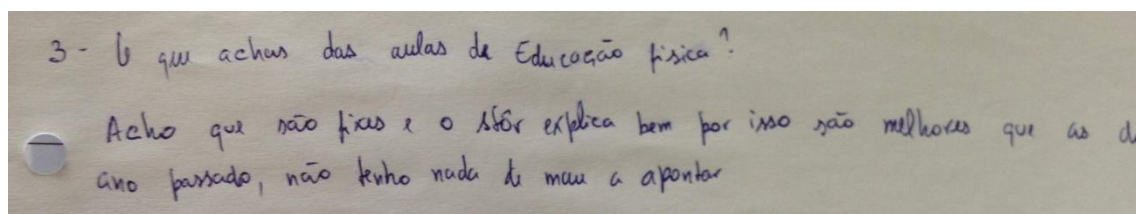 3 - O que achas das aulas de Educação física?
Acho que são fixes e o stôr explica bem por isso são melhores que as d
ano passado, não tenho nada de mau a apontar